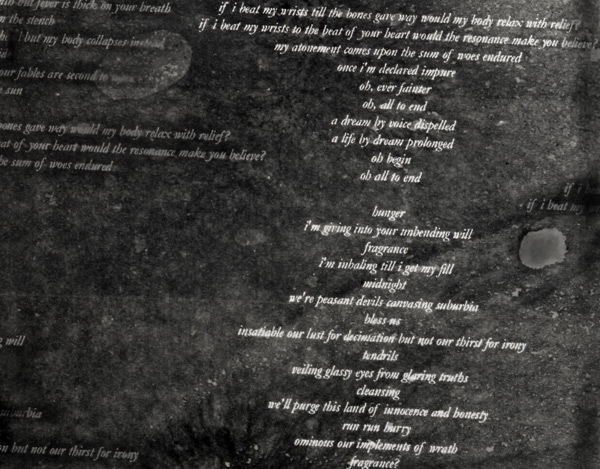 if i beat my wrists till the bones gave way would my body relax with relief?
if i beat my wrists to the beat of your heart would the resonance make you believe?
my atonement comes upon the sum of woes endured
once i'm declared impure
oh, ever fainter
oh, all to end
a dream by voice dispelled
a life by dream prolonged
oh begin
oh all to end
hunger
i'm giving into your unbending will
fragrance
i'm inhaling till i get my fill
midnight
we're peasant devils canvasing suburbia
bless us
insatiable our lust for decimation but not our thirst for irony
tendrils
veiling glassy eyes from glaring truths
cleansing
we'll purge this land of innocence and honesty
run run hurry
ominous our implements of wrath
fragrance?
but fever is thick on your breath
the stench
but my body collapses instead
our fables are second to
sun
bones gave way would my body relax with relief?
eat of your heart would the resonance make you believe?
he sum of woes endured
will
suburbia
n but not our thirst for irony
if i
if i beat my